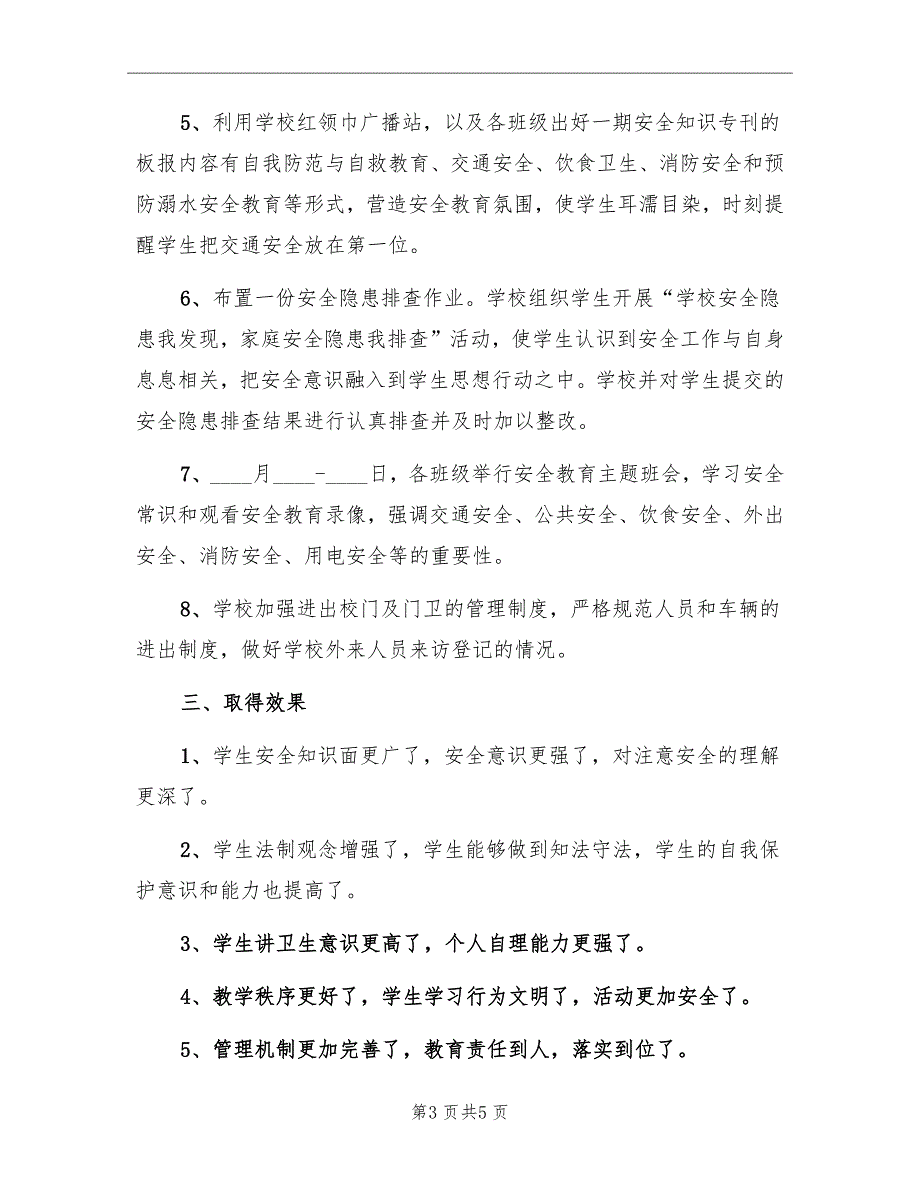 5、利用学校红领巾广播站，以及各班级出好一期安全知识专刊的
板报内容有自我防范与自救教育、交通安全、饮食卫生、消防安全和预
防溺水安全教育等形式，营造安全教育氛围，使学生耳濡目染，时刻提
醒学生把交通安全放在第一位。
6、布置一份安全隐患排查作业。学校组织学生开展“学校安全隐
患我发现，家庭安全隐患我排查”活动，使学生认识到安全工作与自身
息息相关，把安全意识融入到学生思想行动之中。学校并对学生提交的
安全隐患排查结果进行认真排查并及时加以整改。
7、____月____-____日，各班级举行安全教育主题班会，学习安全
常识和观看安全教育录像，强调交通安全、公共安全、饮食安全、外出
安全、消防安全、用电安全等的重要性。
8、学校加强进出校门及门卫的管理制度，严格规范人员和车辆的
进出制度，做好学校外来人员来访登记的情况。
三、取得效果
1、学生安全知识面更广了，安全意识更强了，对注意安全的理解
更深了。
2、学生法制观念增强了，学生能够做到知法守法，学生的自我保
护意识和能力也提高了。
3、学生讲卫生意识更高了，个人自理能力更强了。
4、教学秩序更好了，学生学习行为文明了，活动更加安全了。
5、管理机制更加完善了，教育责任到人，落实到位了。
第3 页共5 页